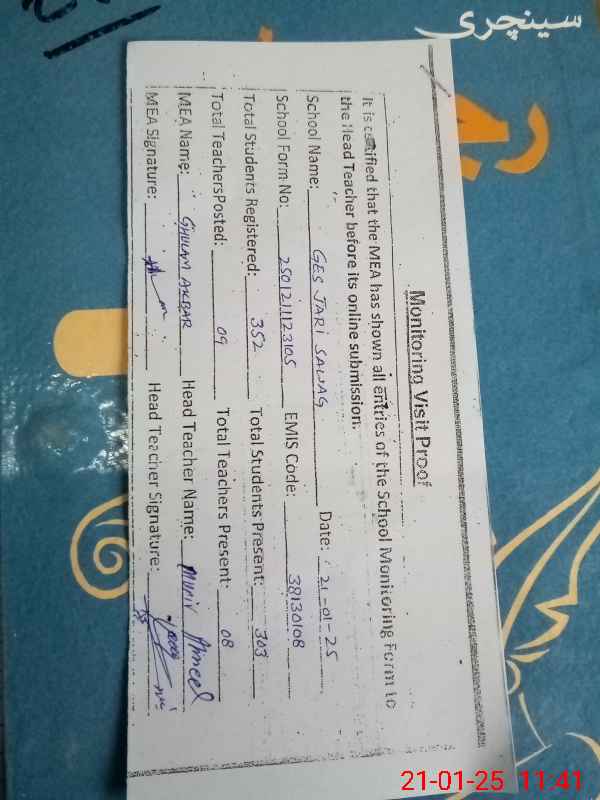 سینچری
Monitoring Visit Proof
It is certified that the MEA has shown all entries of the School Monitoring Form to
the Head Teacher before its online submission.
School Name: GES JARI SALJAG Date: 21-01-25
School Form No: 250121123105 EMIS Code: 38130108
Total Students Registered: 352 Total Students Present: 303
Total TeachersPosted: 09 Total Teachers Present: 08
MEA Name: GHULAM AKBAR Head Teacher Name: Munir Ahmed
MEA Signature: Head Teacher Signature:
21-01-25 11:41